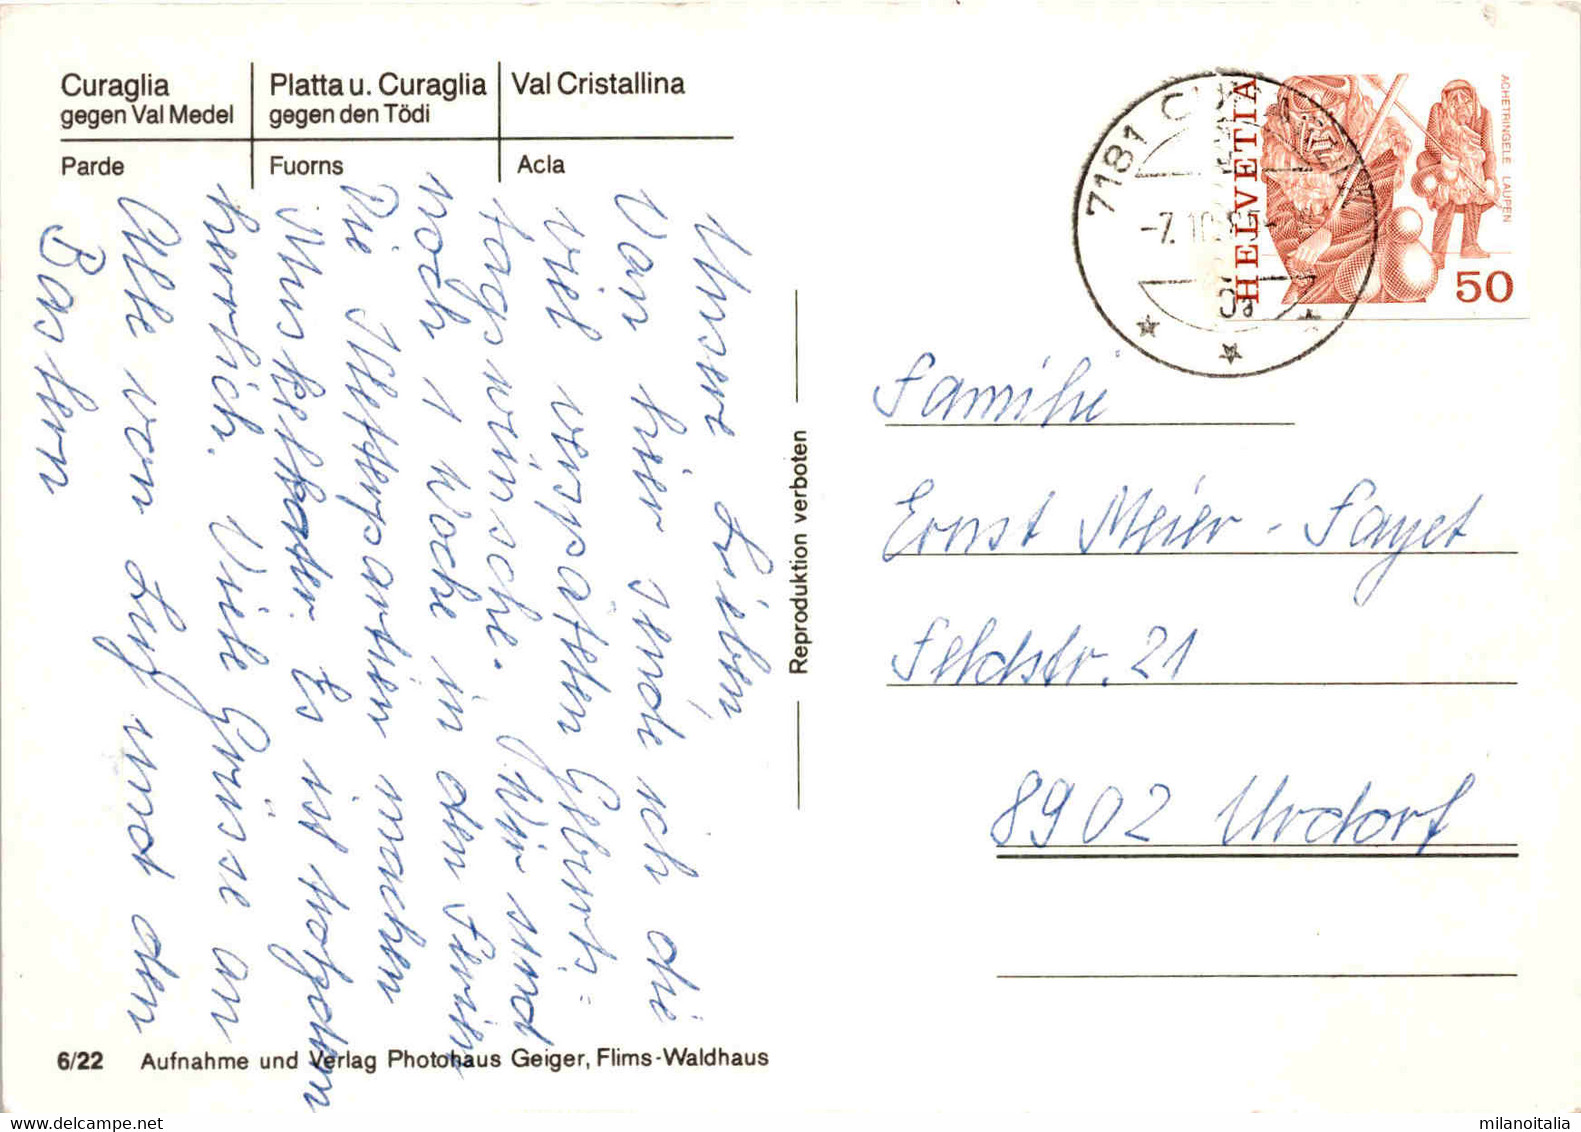 Curaglia
gegen Val Medel
Platta u. Curaglia
gegen den Tödi
Val Cristallina
Parde
Fuorns
Acla
Unsere Lieben,
Von hier sende ich die
viel verspäteten Geburts=
tagswünsche. Wir sind
noch 1 Woche in den Ferien
Die Kletterpartien machen
Muskelkater. Es ist trotzdem
herrlich. Viele Grüsse an
Alle von und den
Baslern
6/22 Aufnahme und Verlag Photohaus Geiger, Flims-Waldhaus
Reproduktion verboten
7181
-7.10.
HELVETIA
ACHETRINGELE LAUPEN
50
Familie
Ernst Meier-Fayet
Feldstr. 21
8902 Urdorf
milanoitalia